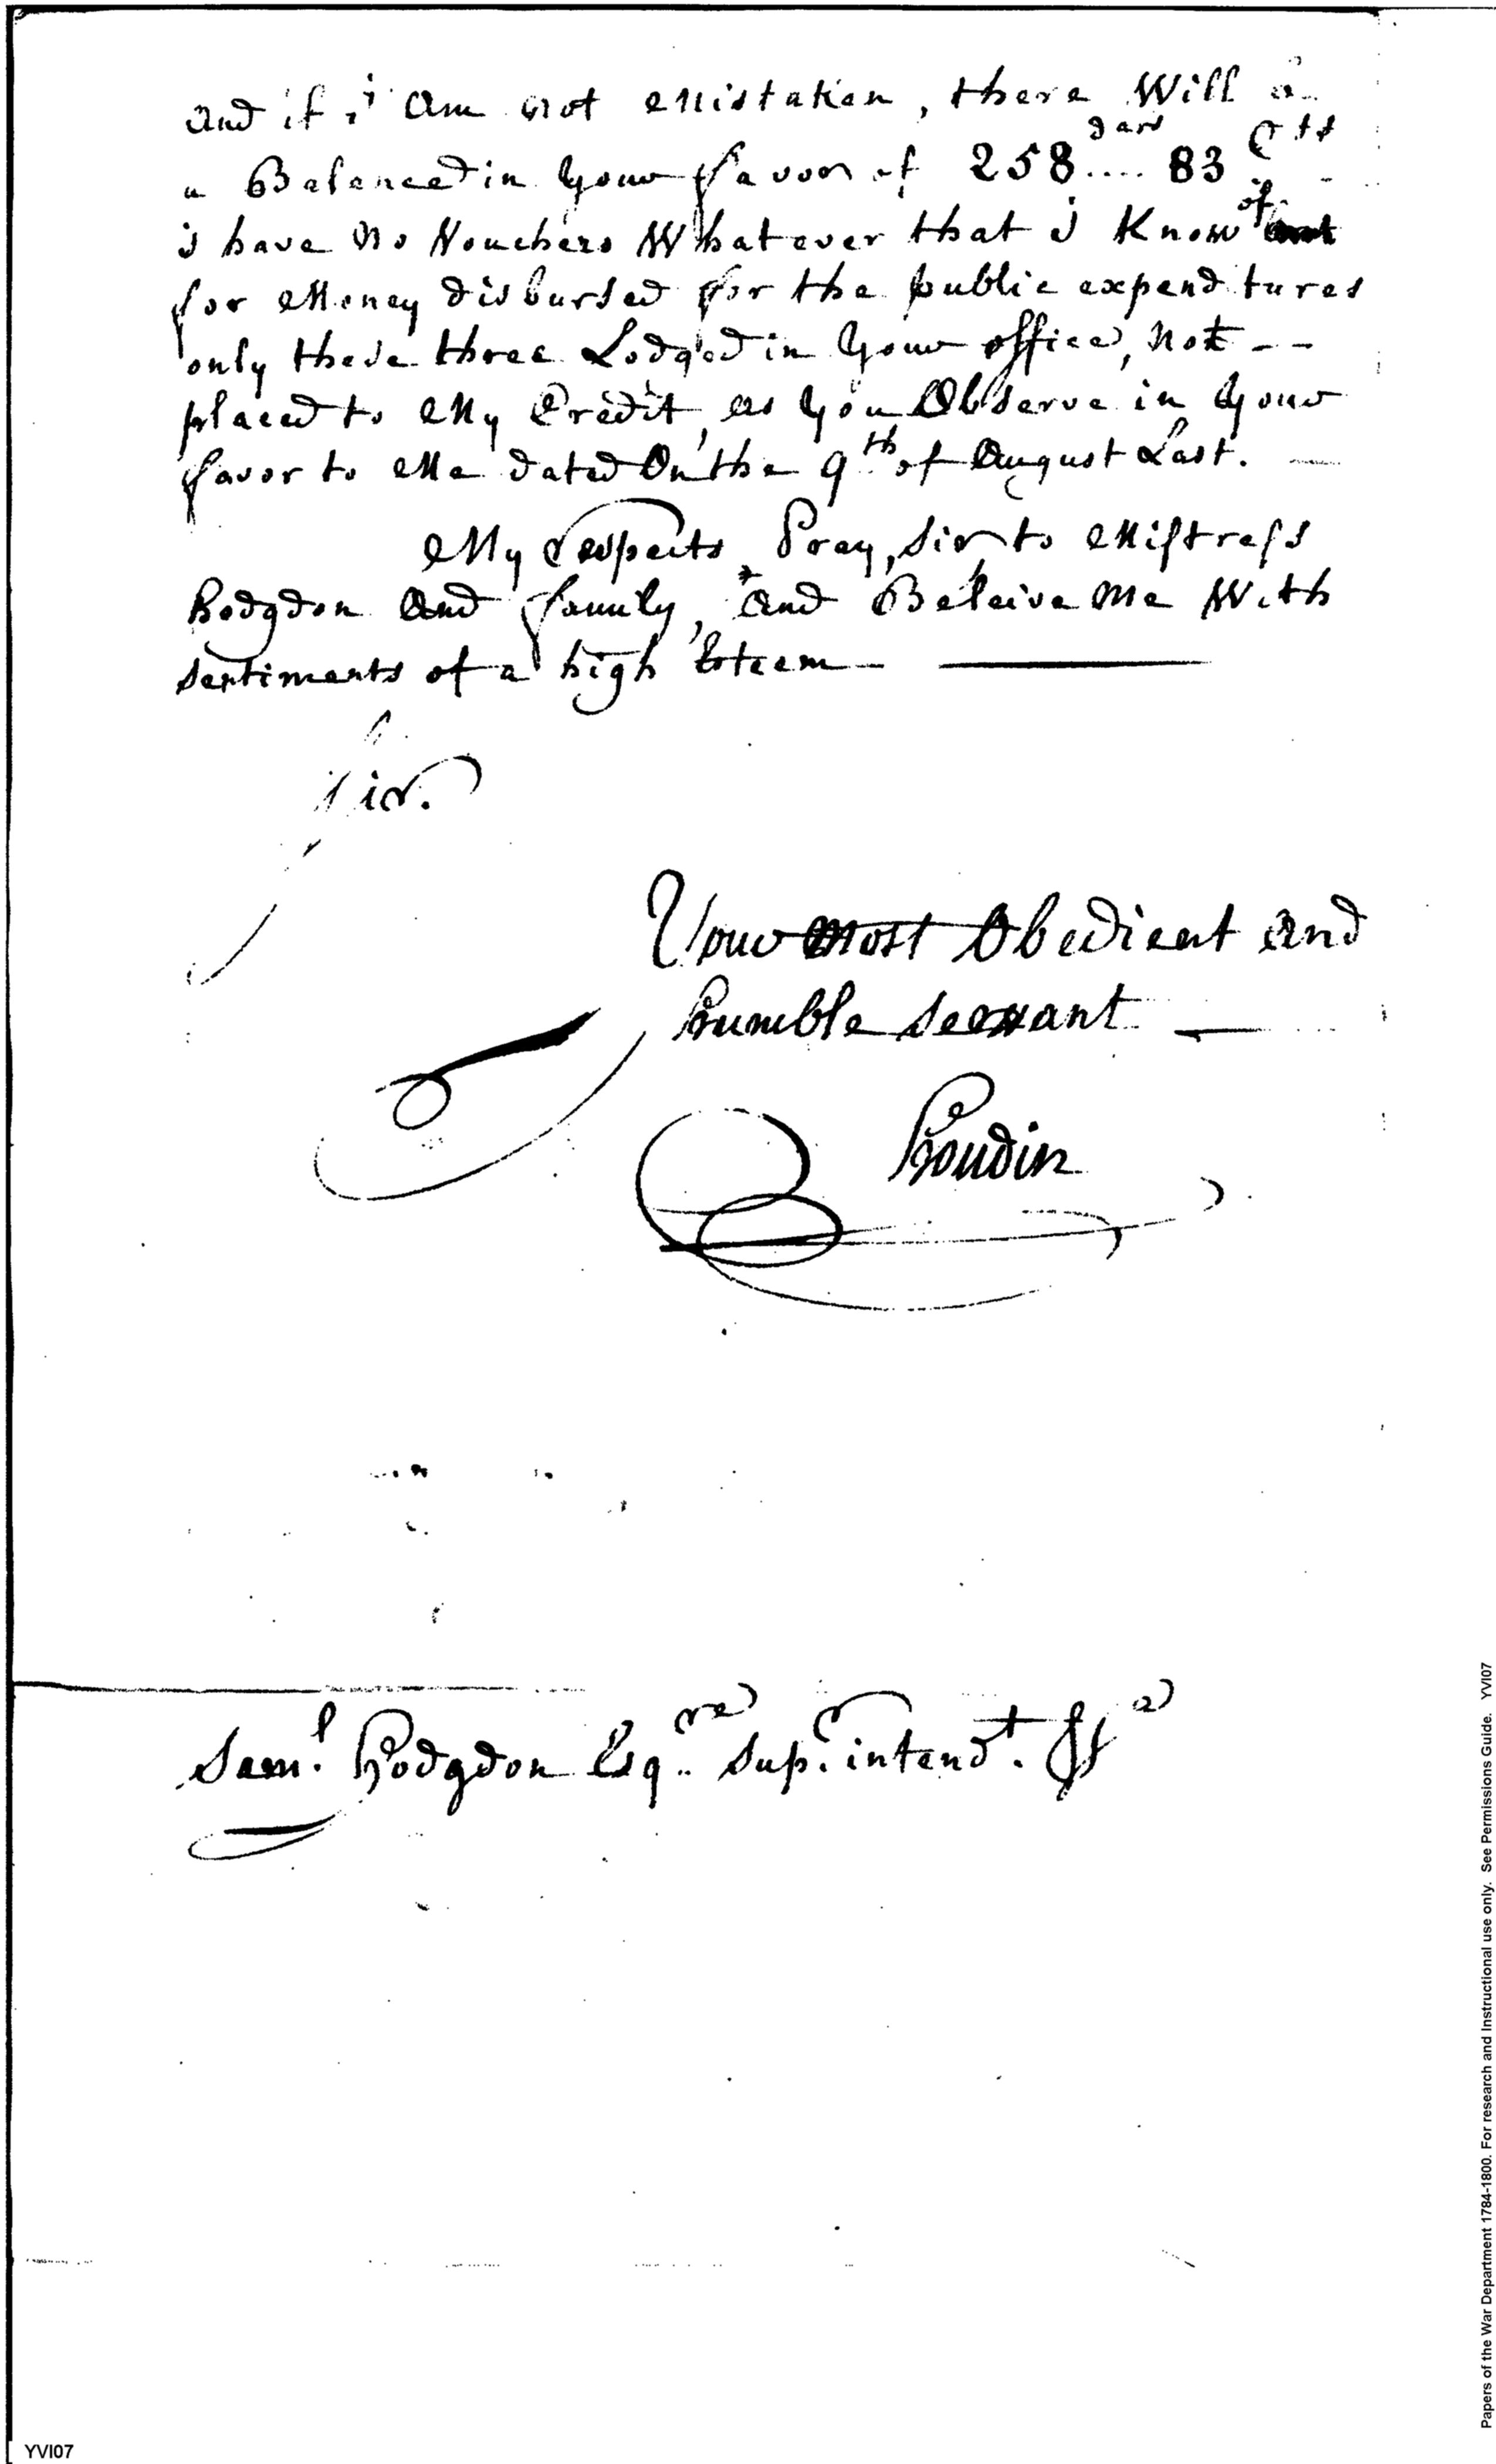 and if i Am not Mistaken, there Will
a Balance in your favoor of 258.... 83 Cts
i have No Vouchers Whatever that i Know of
for Money disbursed for the public expenditures
only these three Lodged in your office, not --
placed to My Credit, as you Observe in your
favor to Me dated On the 9th of August Last. —
My respects, Pray, sir, to Mistress
Hodgdon And family, And Beleive Me With
sentiments of a high Esteem — ———
Sir.
Your Most Obedient and
humble servant —
Poudin
Saml. Hodgdon Esqre. Suprintendt. &a
YVI07
Papers of the War Department 1784-1800. For research and Instructional use only. See Permissions Guide. YVI07